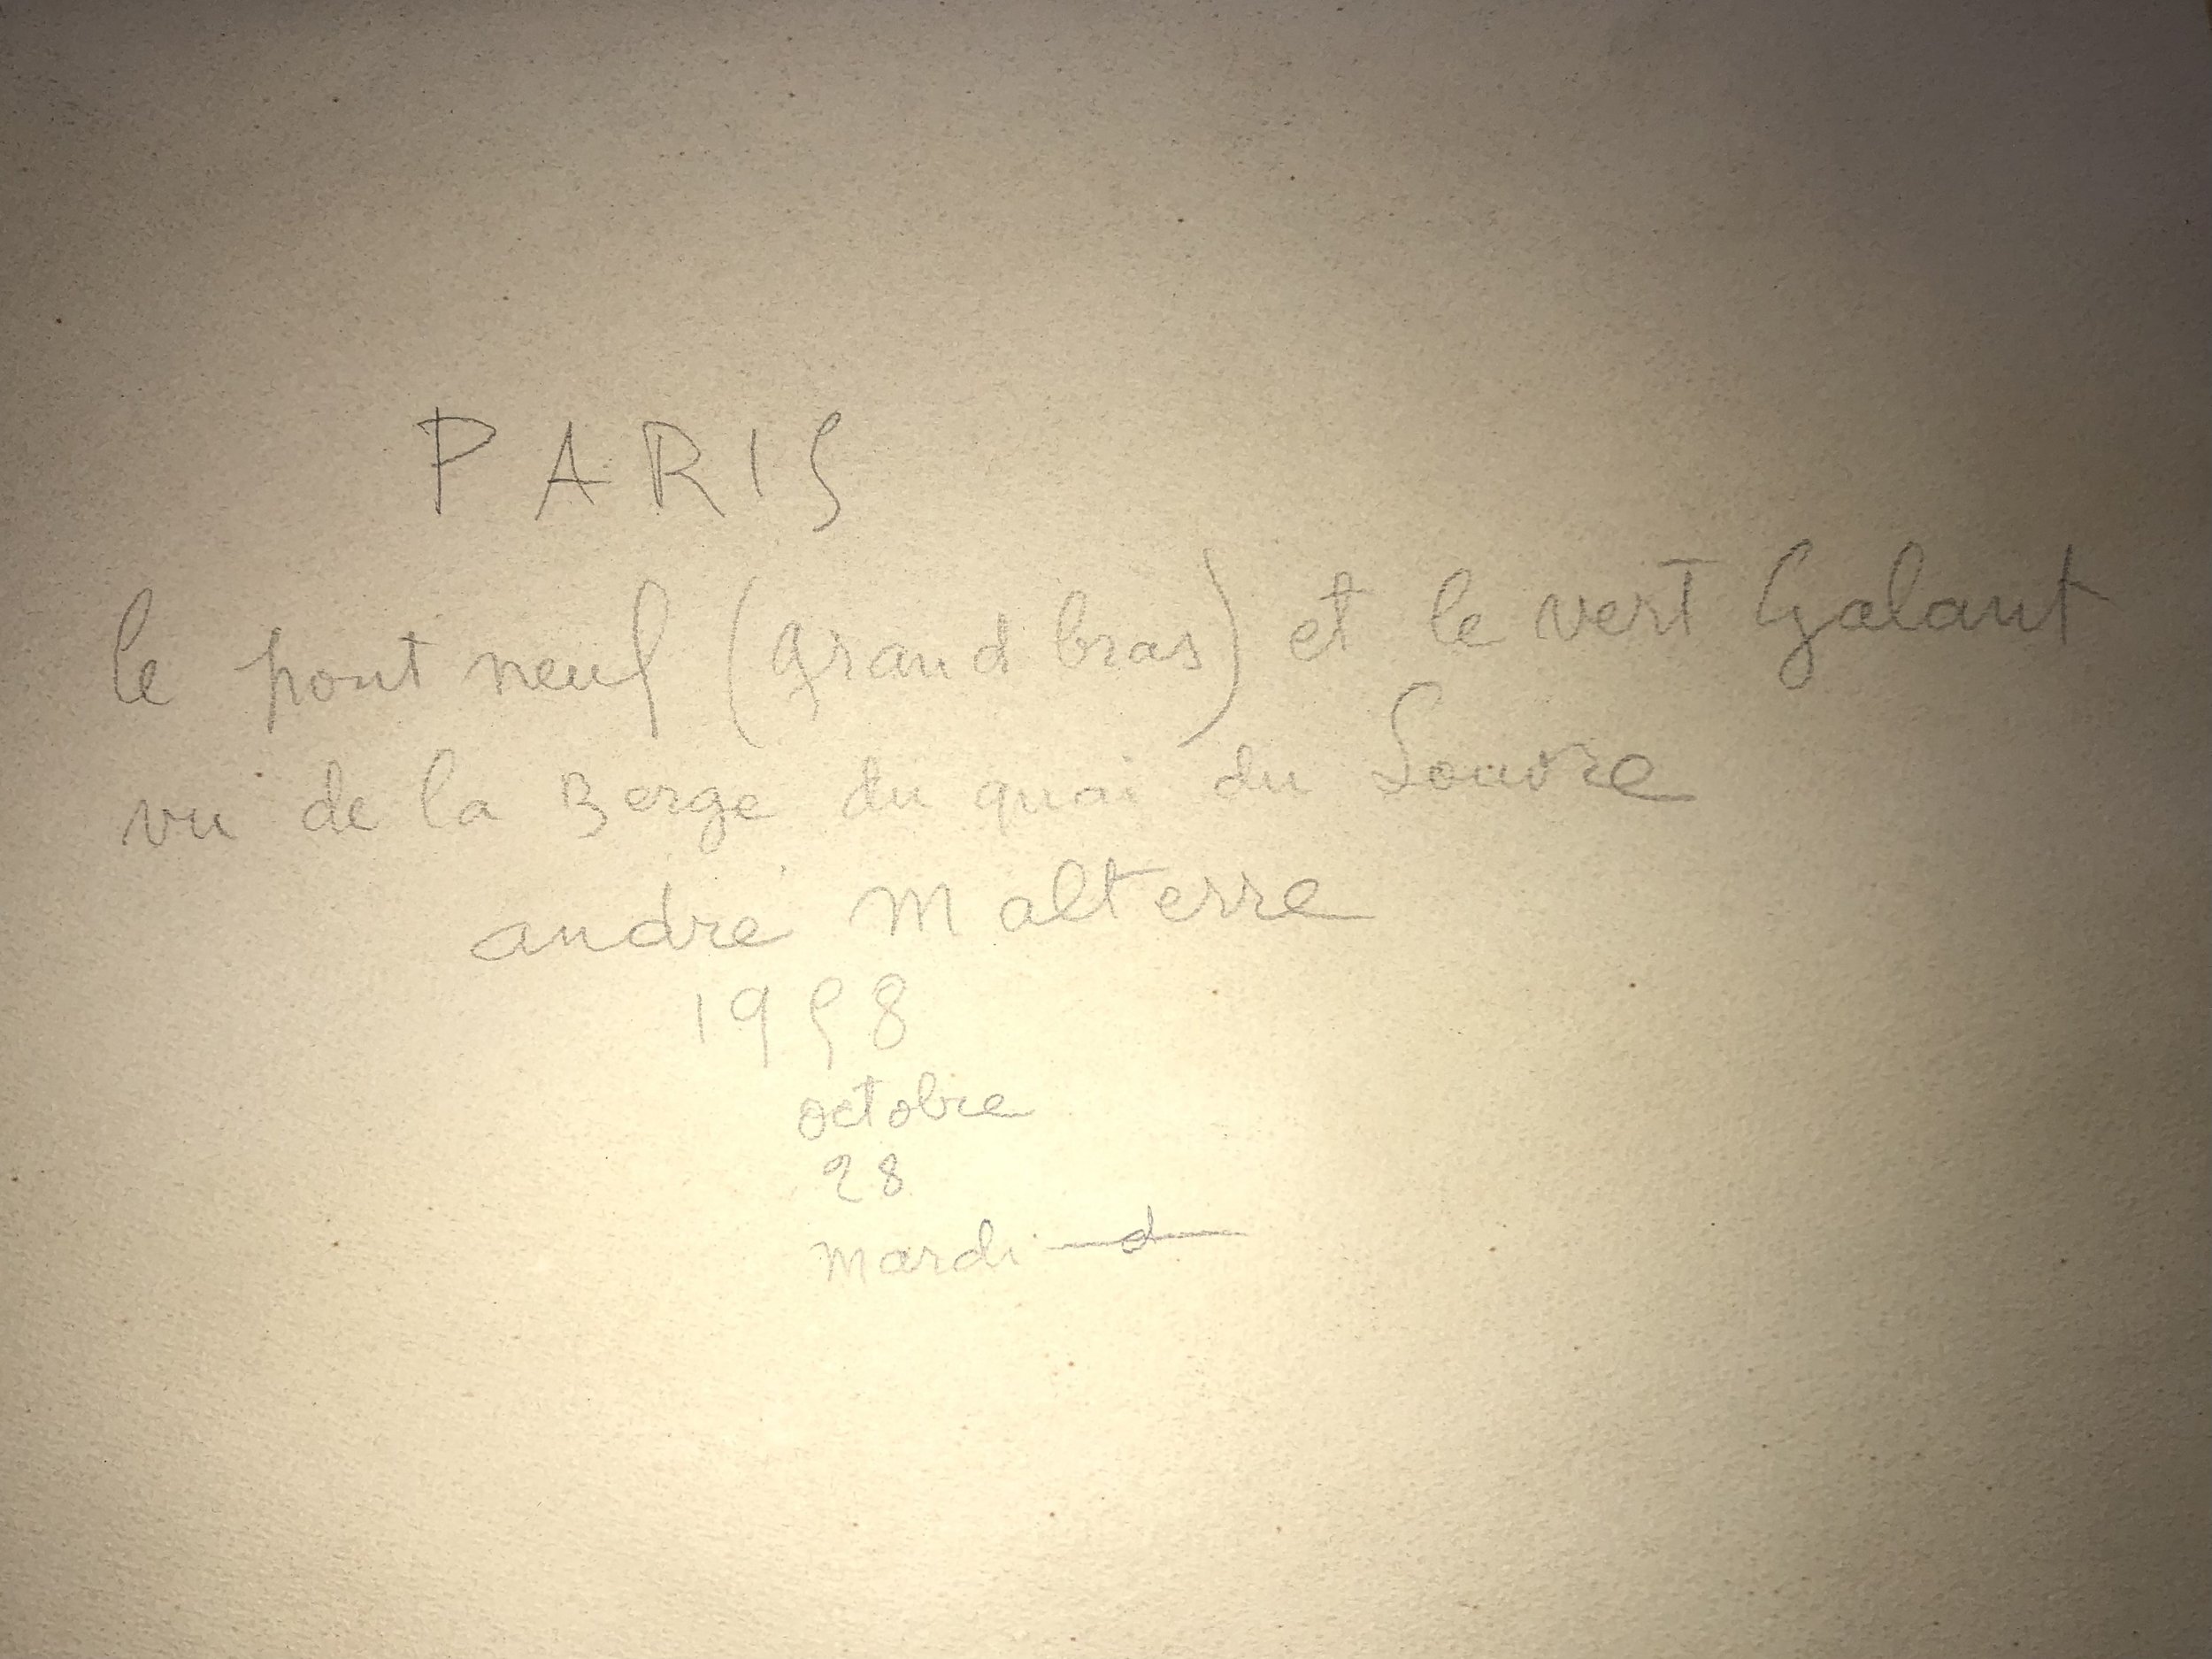 PARIS
le pont neuf (grand bras) et le vert Galant
vu de la Berge du quai du Louvre
andré Malterre
1958
octobre
28
mardi